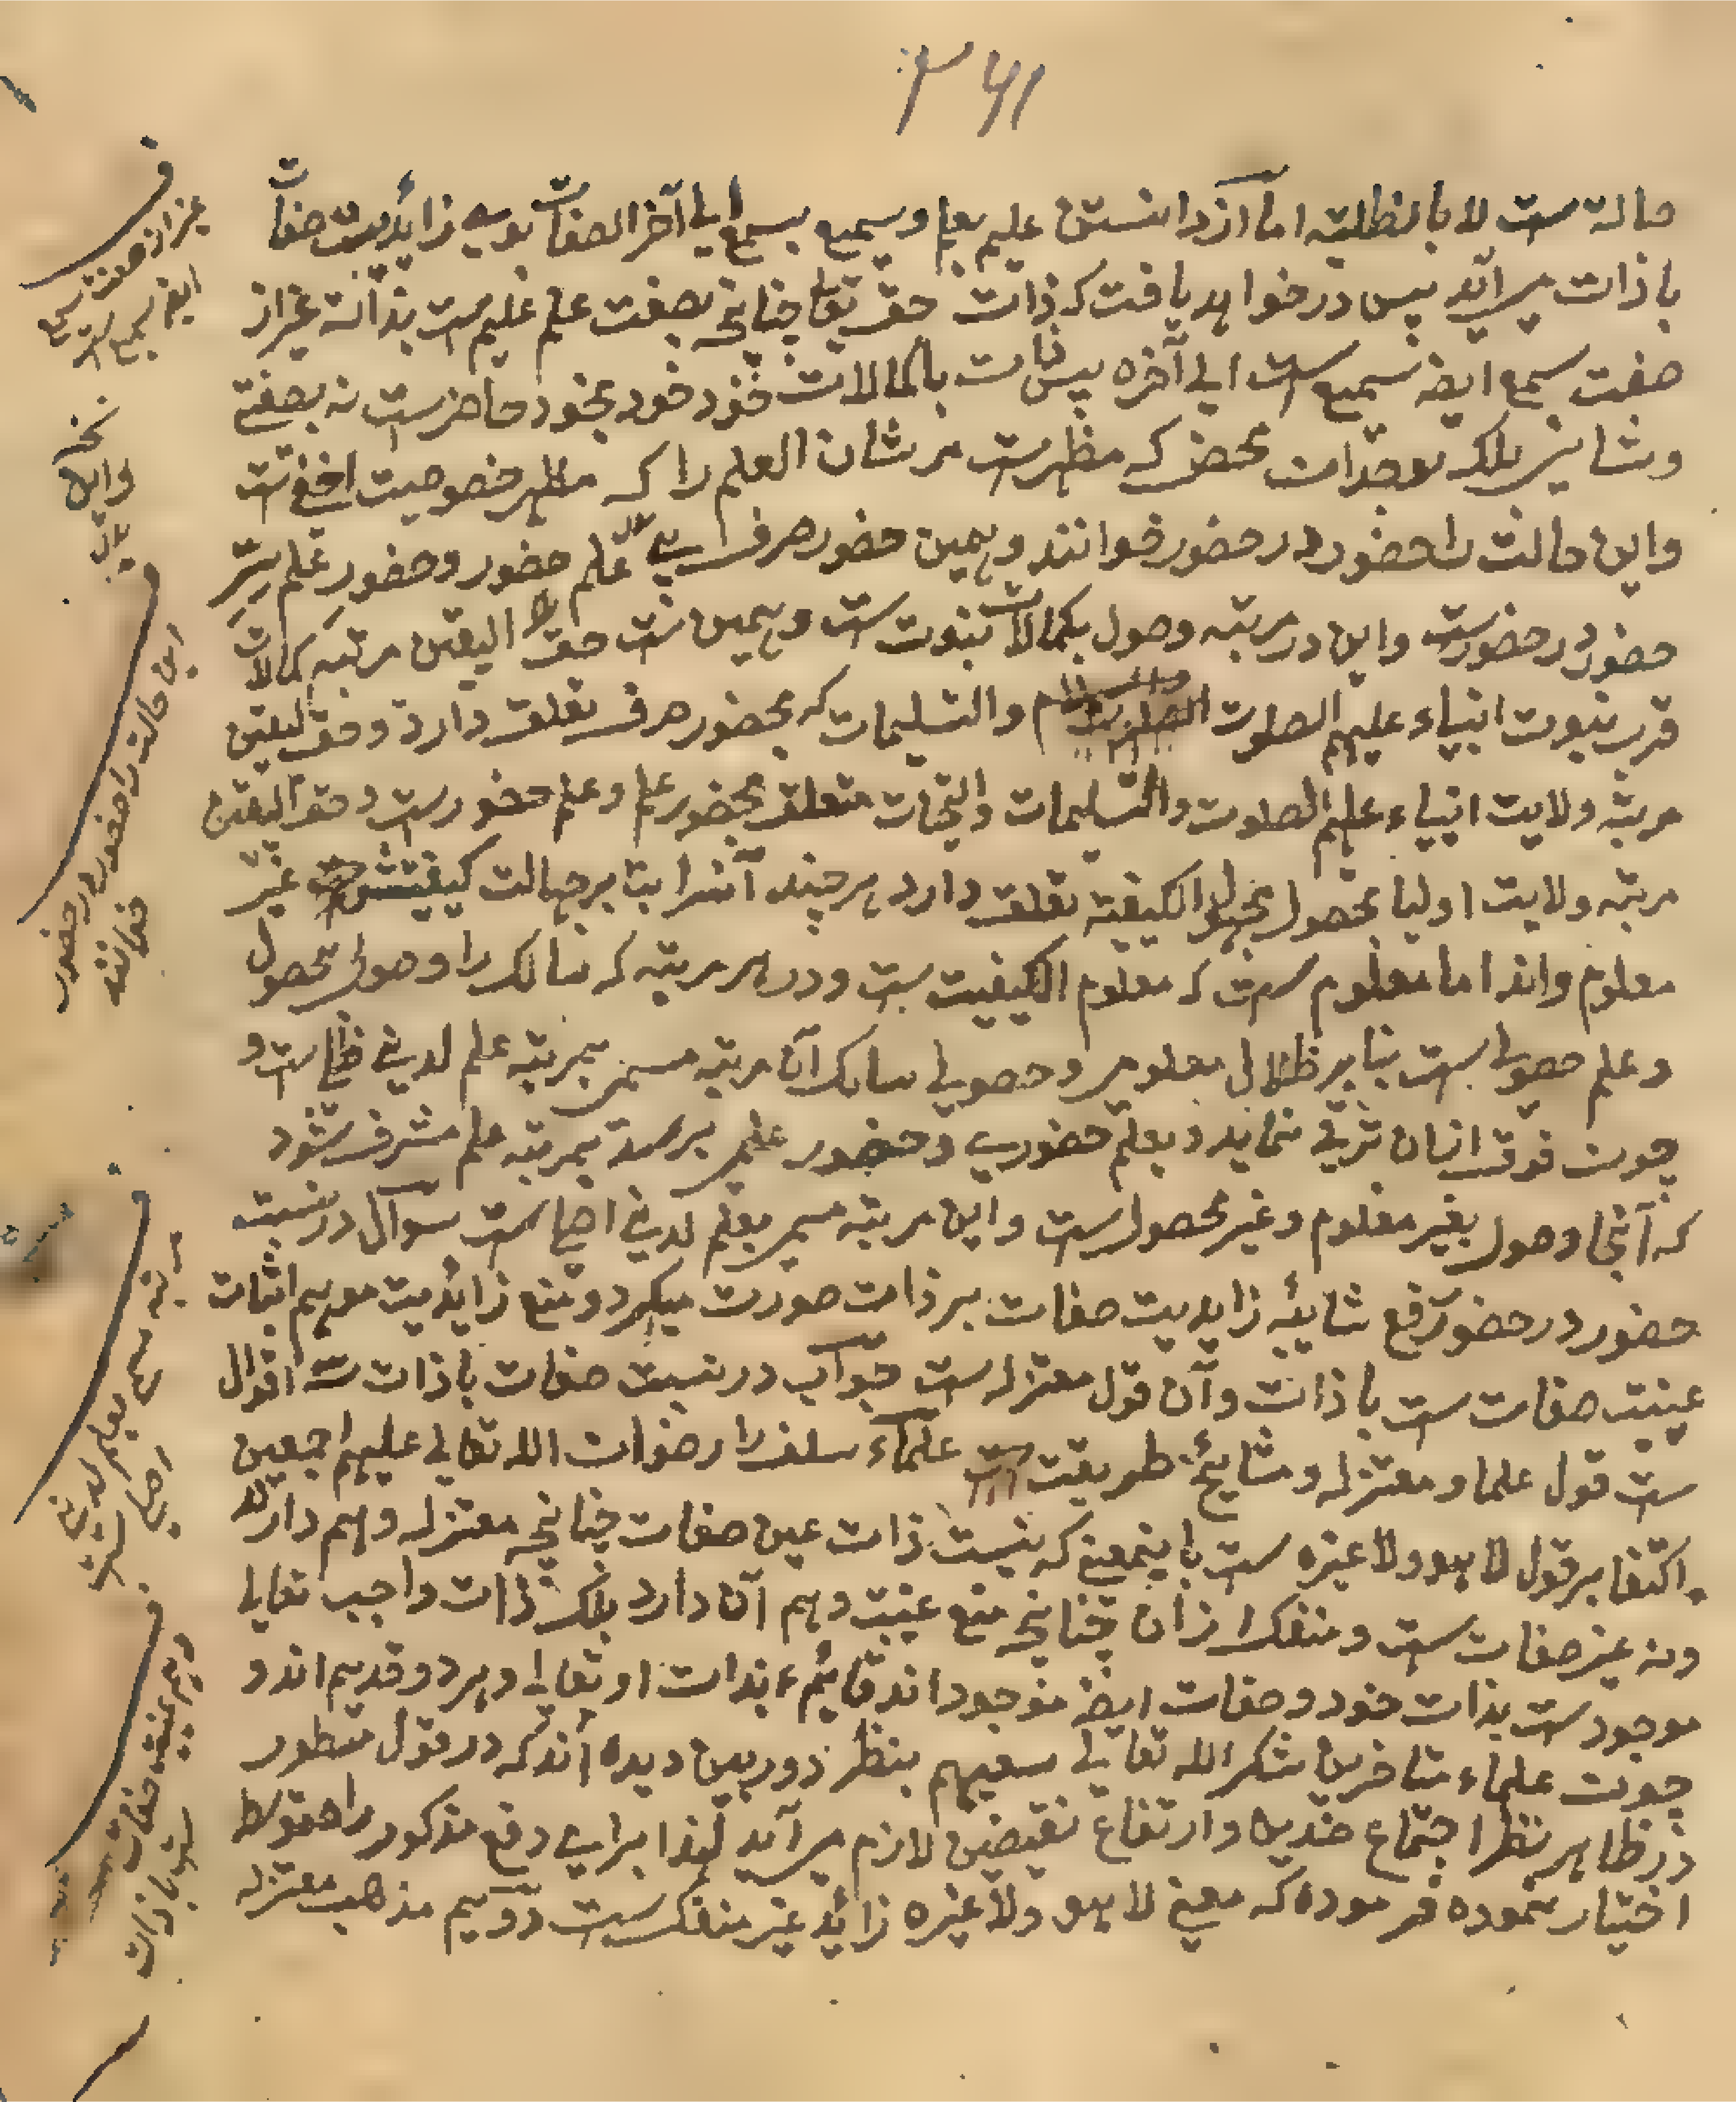 ۳۶۱
حالة ست لا بالظلیة اما از دانستن علیم بعلم وسمیع بسمع الی آخر الصفات بوی زایدیت صفات
با ذات می آید پس درخواهد یافت که ذات حق تعا چنانچه بصفت علم علیم ست بذاته غیر از
صفت سمع ایضه سمیع ست الی آخره پس ذات با کمالات خود خود بخود حاضرست نه بصفتے
وشانے بلکه بوجدان محض که مظهرست مر شان العلم را که مظهر خصوصیت اخفی ست
واین حالت را حضور در حضور خوانند وهمین حضور صرف ست علم حضور وحضور علم ست
حضور در حضورست واین در مرتبه وصول بکمالات نبوت ست وهمین ست حق الیقین مرتبه کمالات
قرب نبوت انبیاء علیهم الصلوت والتسلیمات که بحضور صرف تعلق دارد وحق الیقین
مرتبه ولایت انبیاء علیهم الصلوت والتسلیمات والتحیات متعلق بحضور علم وعلم حضورست وحق الیقین
مرتبه ولایت اولیا بحصول مجهول الکیفیة تعلق دارد هر چند آنرا بنا بر جهالت کیفیتش غیر
معلوم دانند اما معلوم ست که معلوم الکیفیت ست ودر هر مرتبه که سالک را وصول بحصول
وعلم حصولی ست بنا بر ظلال معلومی وحصولی سالک آن مرتبه مسمی بمرتبه علم لدنی ظلی ست و
چون فوق ازان ترقی نماید وبعلم حضوری وحضور علمی برسد بمرتبه علم مشرف شود
که آنجا وصول بغیر معلوم وغیر محصول ست واین مرتبه مسمی بعلم لدنی اصلی ست سوال در نسبت
حضور در حضور رفع شایبه زایدیت صفات بر ذات صورت میگیرد ومنع زایدیت موهم اثبات
عینیت صفات ست با ذات وآن قول معتزله ست جواب در نسبت صفات با ذات سه اقوال
ست قول علما ومعتزله ومشایخ طریقت علماء سلف را رضوان الله تعالی علیهم اجمعین
اکتفا بر قول لا هو ولا غیره ست باینمعنی که نیست ذات عین صفات چنانچه معتزله وهم دارند
ونه غیر صفات ست ومنفک ازان چنانچه منع عینیت وهم آن دارد بلکه ذات واجب تعالی
موجودست بذات خود وصفات ایضه موجود اند قایم بذات او تعالی وهر دو قدیم اند و
چون علماء متاخرین شکر الله تعالی سعیهم بنظر دوربین دیده اند که در قول مسطور
در ظاهر نظر اجتماع ضدین وارتفاع نقیضین لازم می آید لهذا برای دفع مذکور راه
اختیار نموده فرموده که معنی لا هو ولا غیره زاید غیر منفک ست دویم مذهب معتزله
ف
غیر از صفت سمع
ایضه سمیع ست
واین
ف
این حالت را حضور در حضور
خوانند
ف
مرتبه مسمی بعلم لدنی
اصلی ست
ف
وهم عینیت صفات
ست با ذات